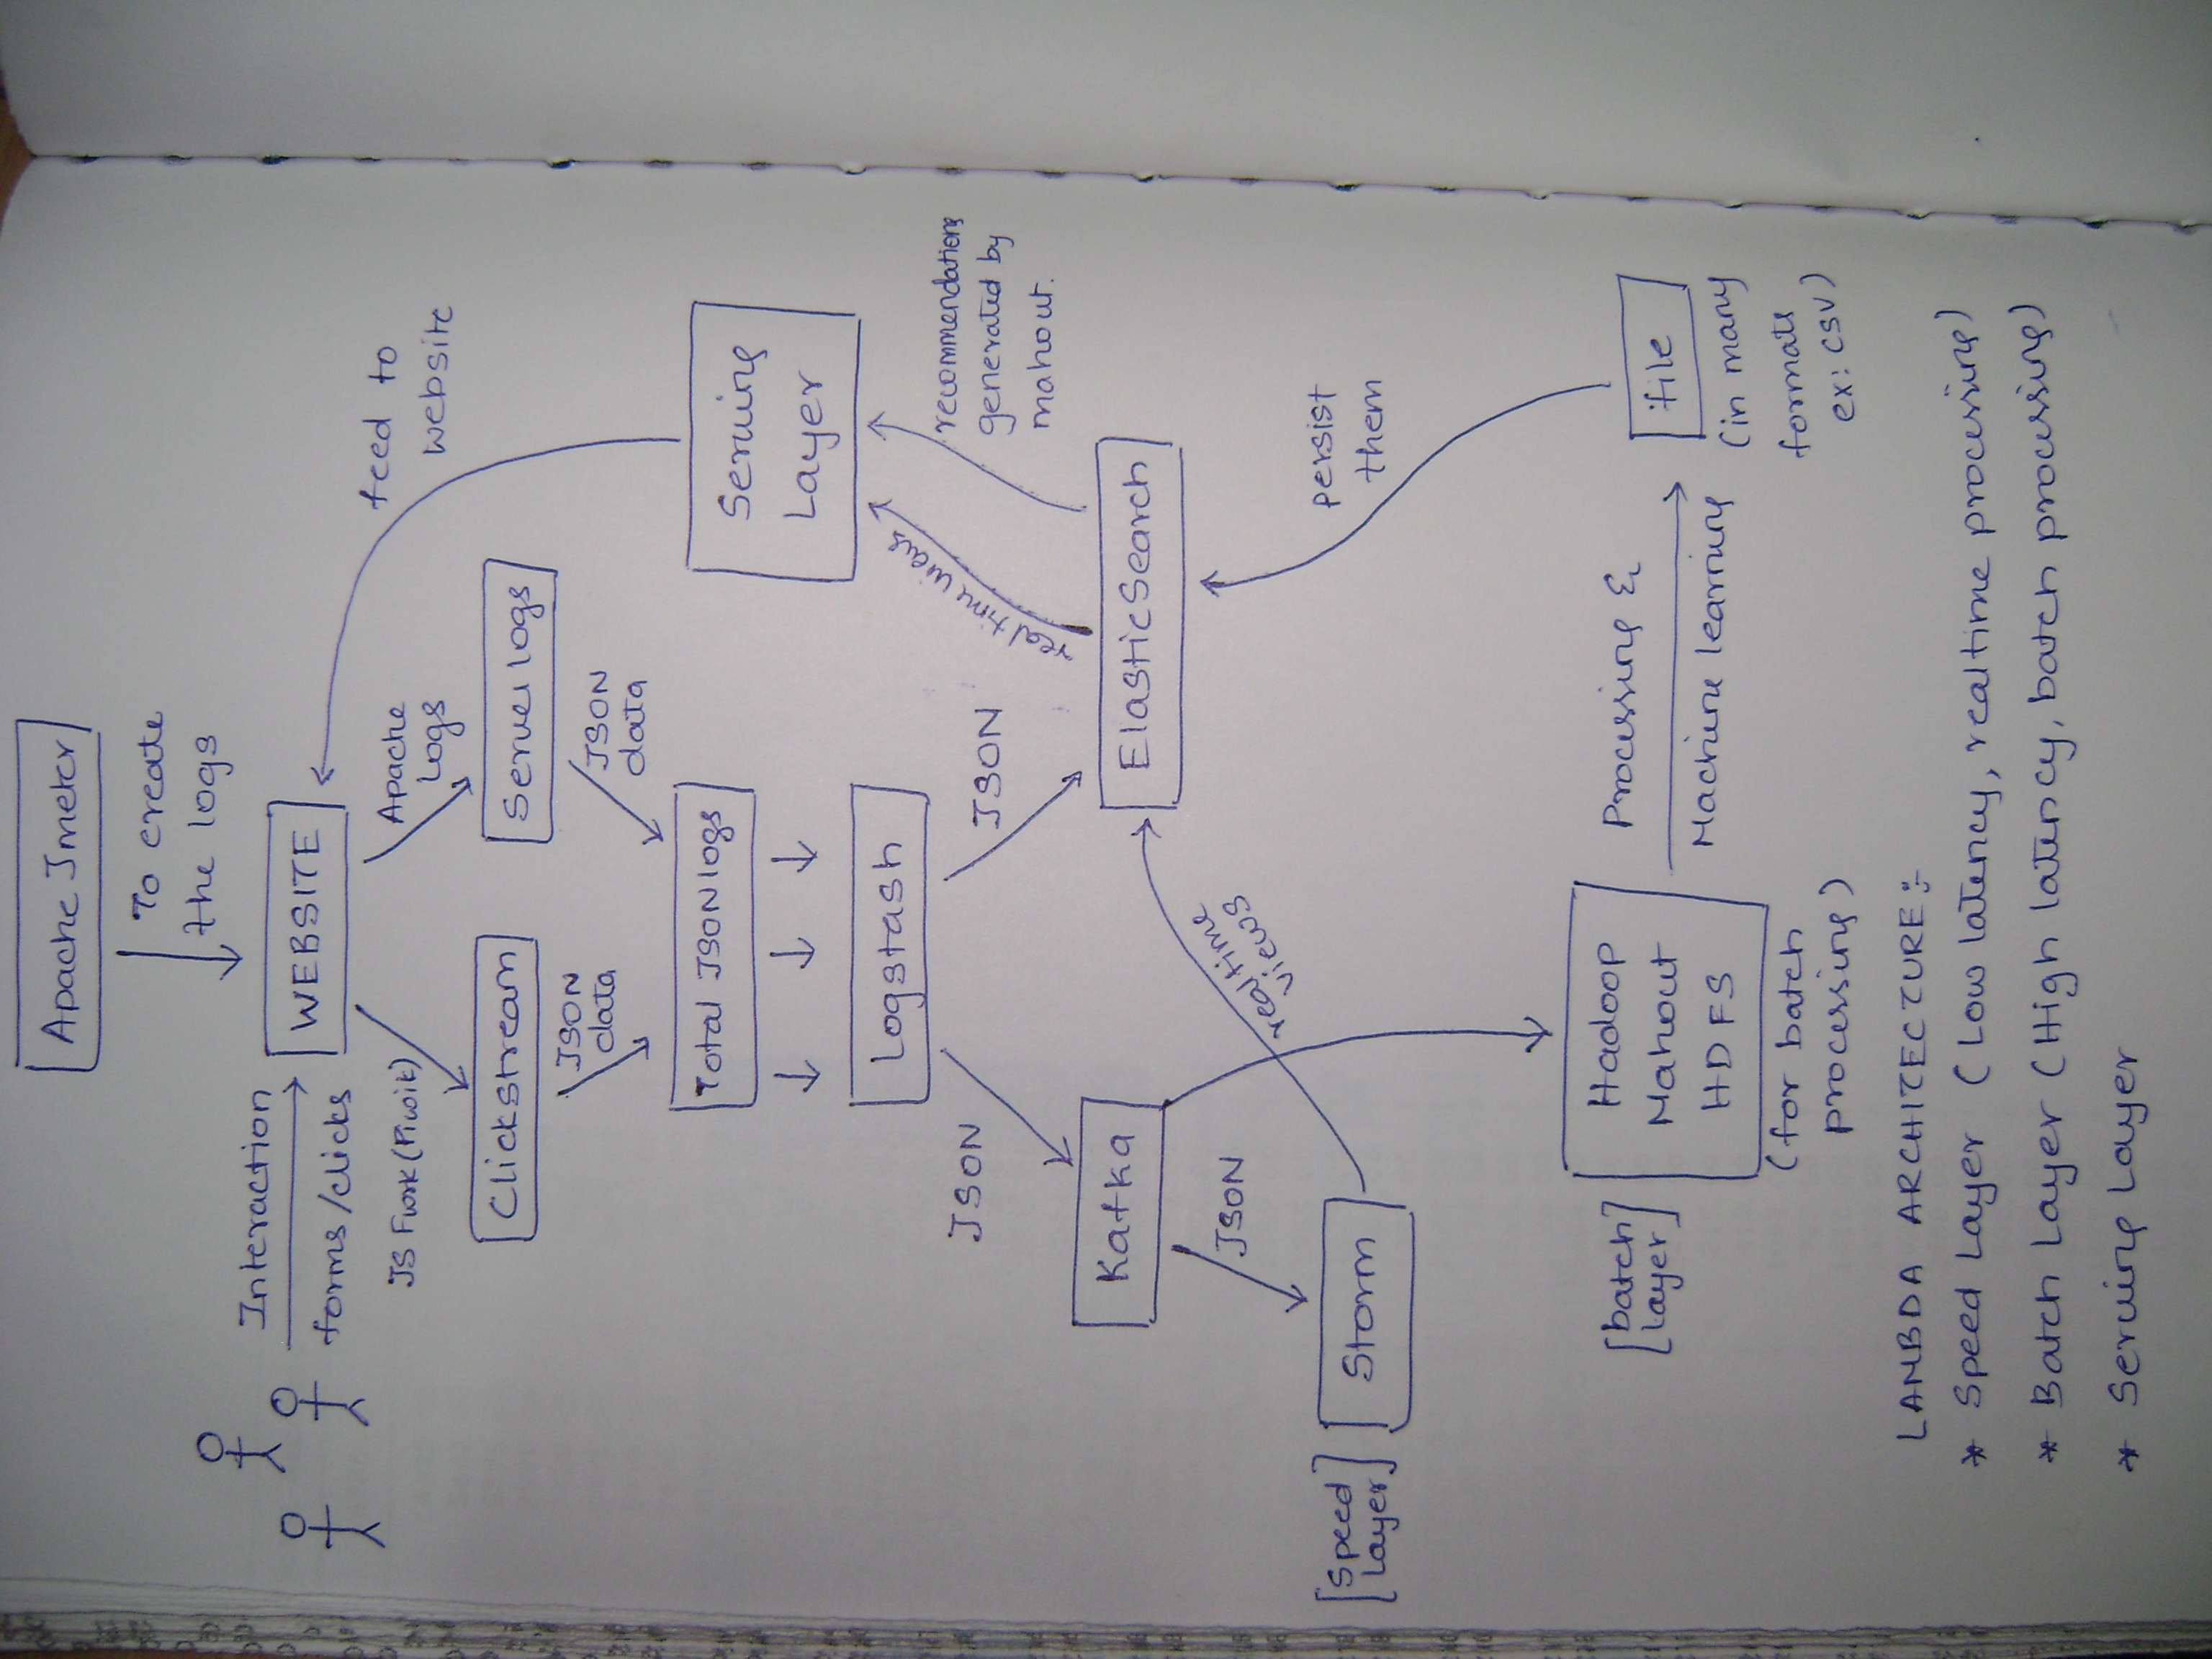 Apache Jmeter
To create
the logs
Interaction
forms/clicks
WEBSITE
feed to
website
JS Fwrk (Piwik)
Apache
Logs
Clickstream
Server logs
JSON
data
JSON
data
Total JSON logs
Serving
Layer
Logstash
JSON
JSON
realtime views
recommendations
generated by
mahout.
Kafka
ElasticSearch
JSON
realtime
views
[Speed
Layer]
Storm
persist
them
[batch
layer]
Hadoop
Mahout
HDFS
(for batch
processing)
Processing &
Machine learning
file
(in many
formats
ex: CSV)
LAMBDA ARCHITECTURE :-
* Speed Layer (Low latency, realtime processing)
* Batch Layer (High latency, batch processing)
* Serving Layer